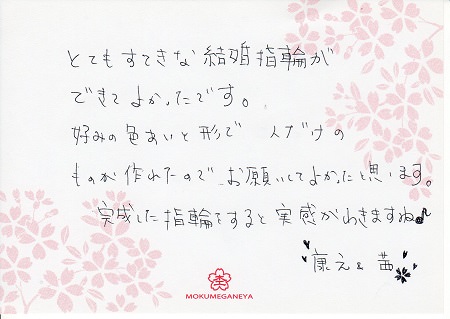 とてもすてきな結婚指輪が
できてよかったです。
好みの色あいと形で 人だけの
ものが作れたので、お願いしてよかったと思います。
完成した指輪をすると実感がわきますね♪
康え & 茜
MOKUMEGANEYA